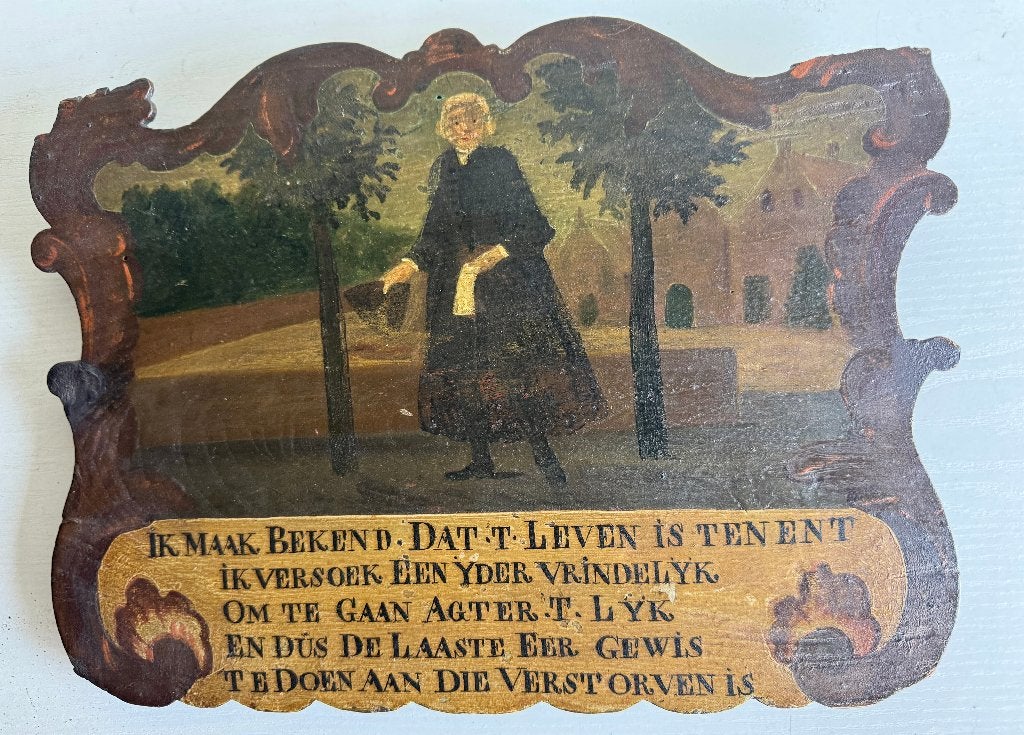 IK MAAK BEKEND. DAT .T. LEVEN IS TEN ENT
IK VERSOEK EEN YDER VRINDELYK
OM TE GAAN AGTER .T. LYK
EN DÚS DE LAASTE EER GEWIS
TE DOEN AAN DIE VERSTORVEN IS